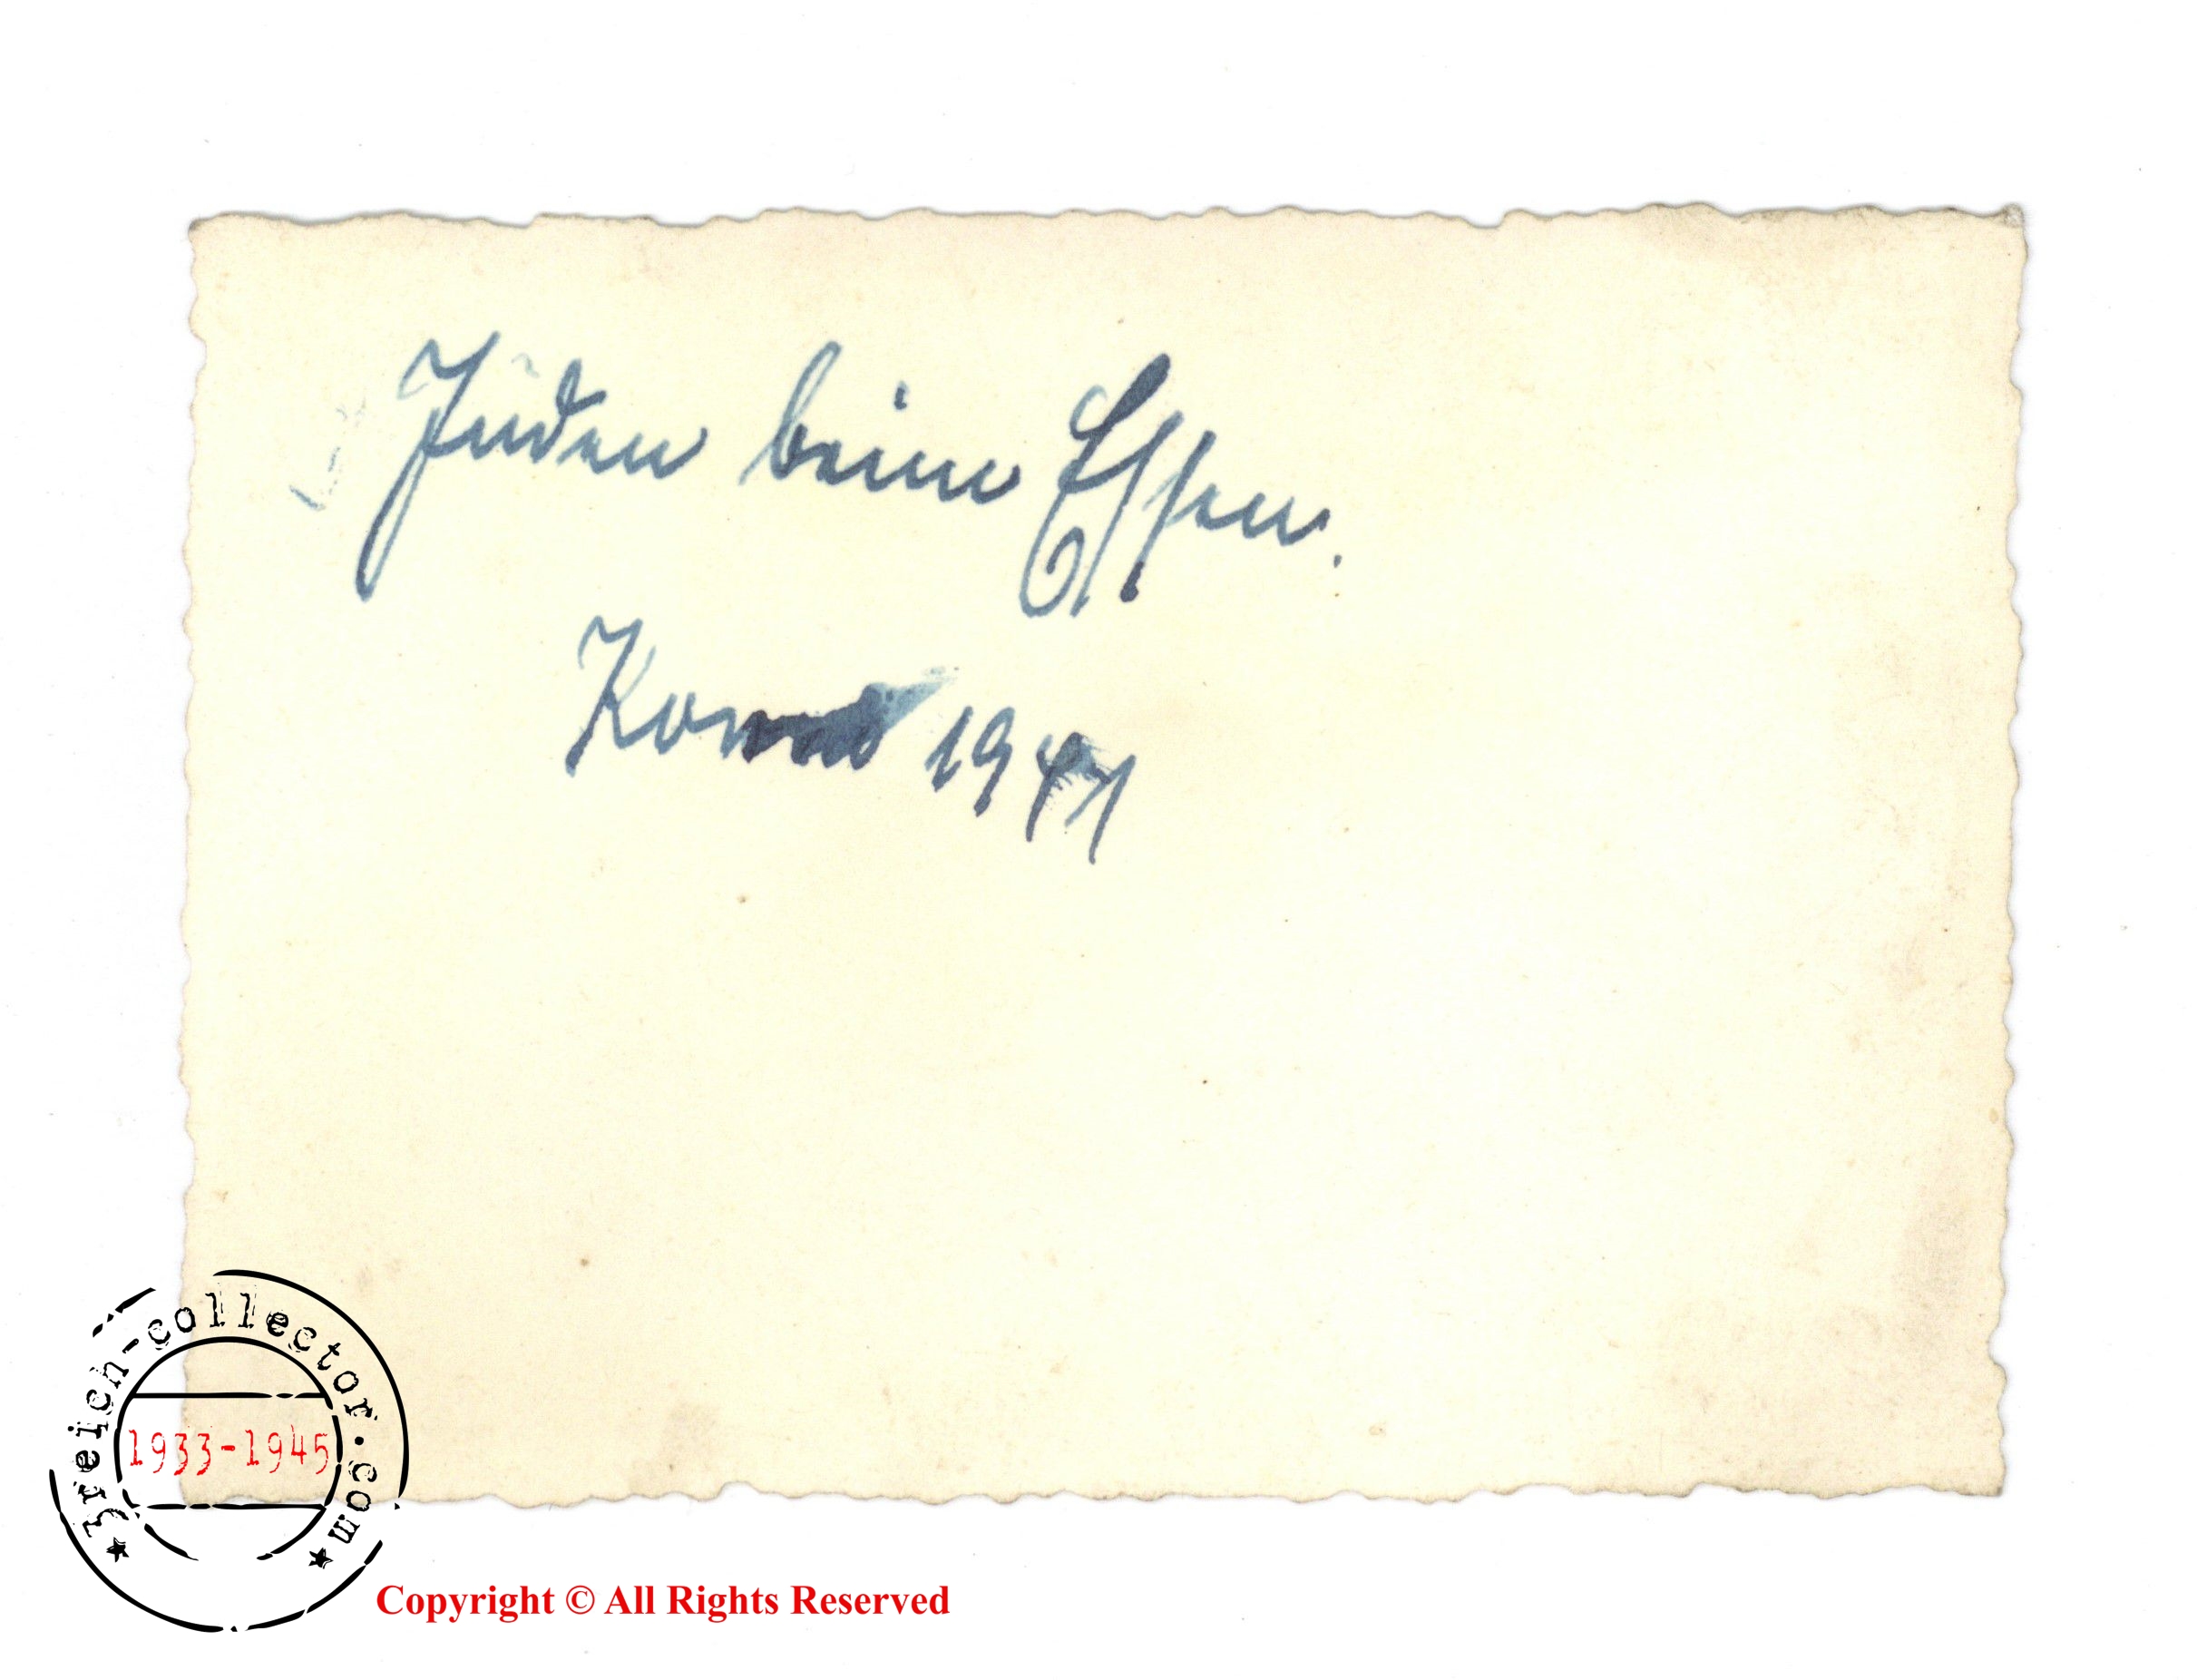 Juden beim Essen.
1941
★ 3reich-collector.com ★
1933-1945
Copyright © All Rights Reserved